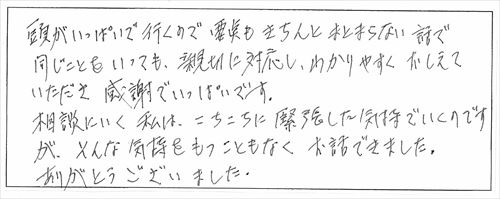 頭がいっぱいで行くので要点もきちんとまとまらない話で
同じこともいっても、親切に対応し、わかりやすくおしえて
いただき感謝でいっぱいです。
相談にいく私は、こちこちに緊張した気持でいくのです
が、そんな気持をもつこともなくお話できました。
ありがとうございました。